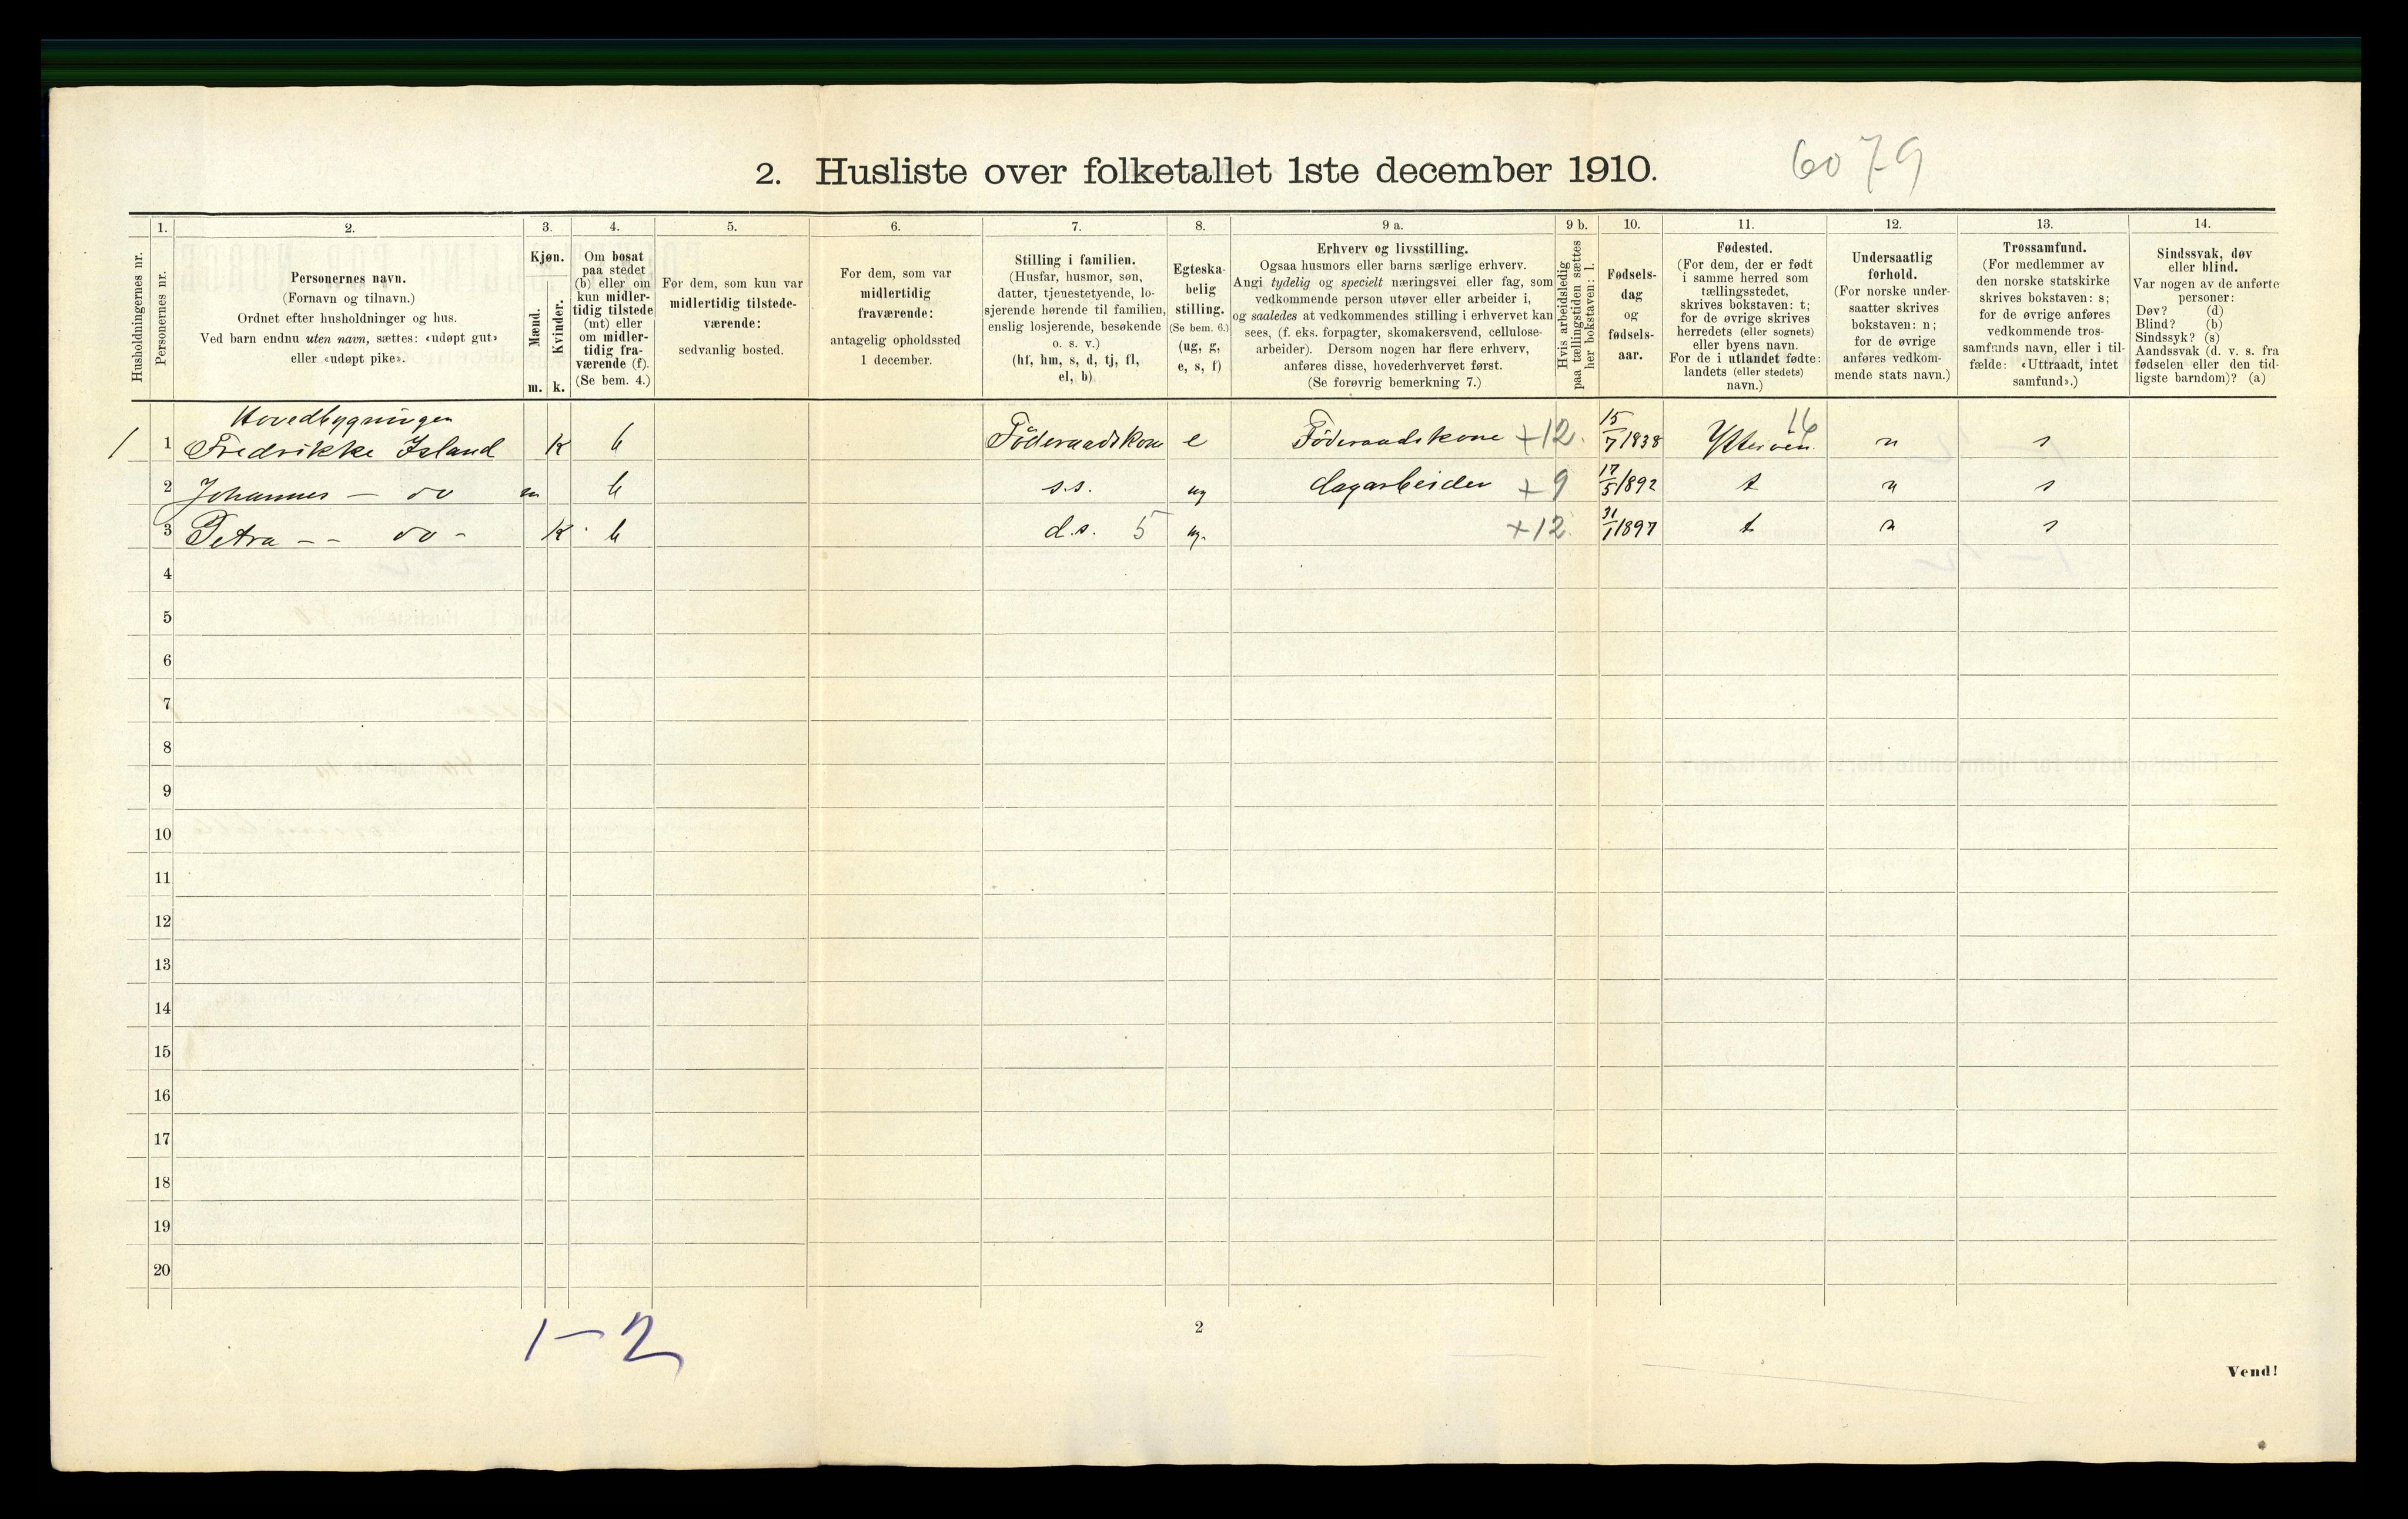 2. Husliste over folketallet 1ste december 1910.
6079
1. 2. 3. 4. 5. 6. 7. 8. 9 a. 9 b. 10. 11. 12. 13. 14.
Husholdningernes nr.
Personernes nr.
Personernes navn.
(Fornavn og tilnavn.)
Ordnet efter husholdninger og hus.
Ved barn endnu uten navn, sættes: «udøpt gut»
eller «udøpt pike».
Kjøn.
Mænd.
Kvinder.
m. k.
Om bosat
paa stedet
(b) eller om
kun midler-
tidig tilstede
(mt) eller
om midler-
tidig fra-
værende (f).
(Se bem. 4.)
For dem, som kun var
midlertidig tilstede-
værende:
sedvanlig bosted.
For dem, som var
midlertidig
fraværende:
antagelig opholdssted
1 december.
Stilling i familien.
(Husfar, husmor, søn,
datter, tjenestetyende, lo-
sjerende hørende til familien,
enslig losjerende, besøkende
o. s. v.)
(hf, hm, s, d, tj, fl,
el, b)
Egteska-
belig
stilling.
(Se bem. 6.)
(ug, g,
e, s, f)
Erhverv og livsstilling.
Ogsaa husmors eller barns særlige erhverv.
Angi tydelig og specielt næringsvei eller fag, som
vedkommende person utøver eller arbeider i,
og saaledes at vedkommendes stilling i erhvervet kan
sees, (f. eks. forpagter, skomakersvend, cellulose-
arbeider). Dersom nogen har flere erhverv,
anføres disse, hovederhvervet først.
(Se forøvrig bemerkning 7.)
Hvis arbeidsledig
paa tællingstiden sættes
her bokstaven: l.
Fødsels-
dag
og
fødsels-
aar.
Fødested.
(For dem, der er født
i samme herred som
tællingsstedet,
skrives bokstaven: t;
for de øvrige skrives
herredets (eller sognets)
eller byens navn.
For de i utlandet fødte:
landets (eller stedets)
navn.)
Undersaatlig
forhold.
(For norske under-
saatter skrives
bokstaven: n;
for de øvrige
anføres vedkom-
mende stats navn.)
Trossamfund.
(For medlemmer av
den norske statskirke
skrives bokstaven: s;
for de øvrige anføres
vedkommende tros-
samfunds navn, eller i til-
fælde: «Uttraadt, intet
samfund».)
Sindssvak, døv
eller blind.
Var nogen av de anførte
personer:
Døv? (d)
Blind? (b)
Sindssyk? (s)
Aandssvak (d. v. s. fra
fødselen eller den tid-
ligste barndom)? (a)
Hovedbygningen
1 1 Fredrikke Island K b Föderaadskone e Föderaadskone +12. 15/7 1838 16 n s
2 Johannes — do m b s.s. ug dagarbeider +9 17/5 1892 t n s
3 Petra - - do - K b d.s. 5 ug. +12. 31/1 1897 t n s
4
5
6
7
8
9
10
11
12
13
14
15
16
17
18
19
20
1-2
2
Vend!